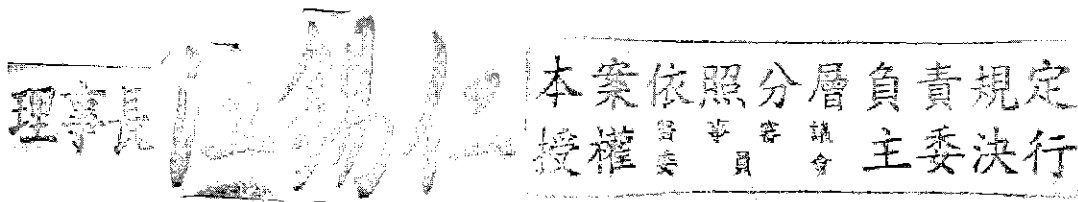 理事長
本案依照分層負責規定
授權醫事審議委員會主委決行